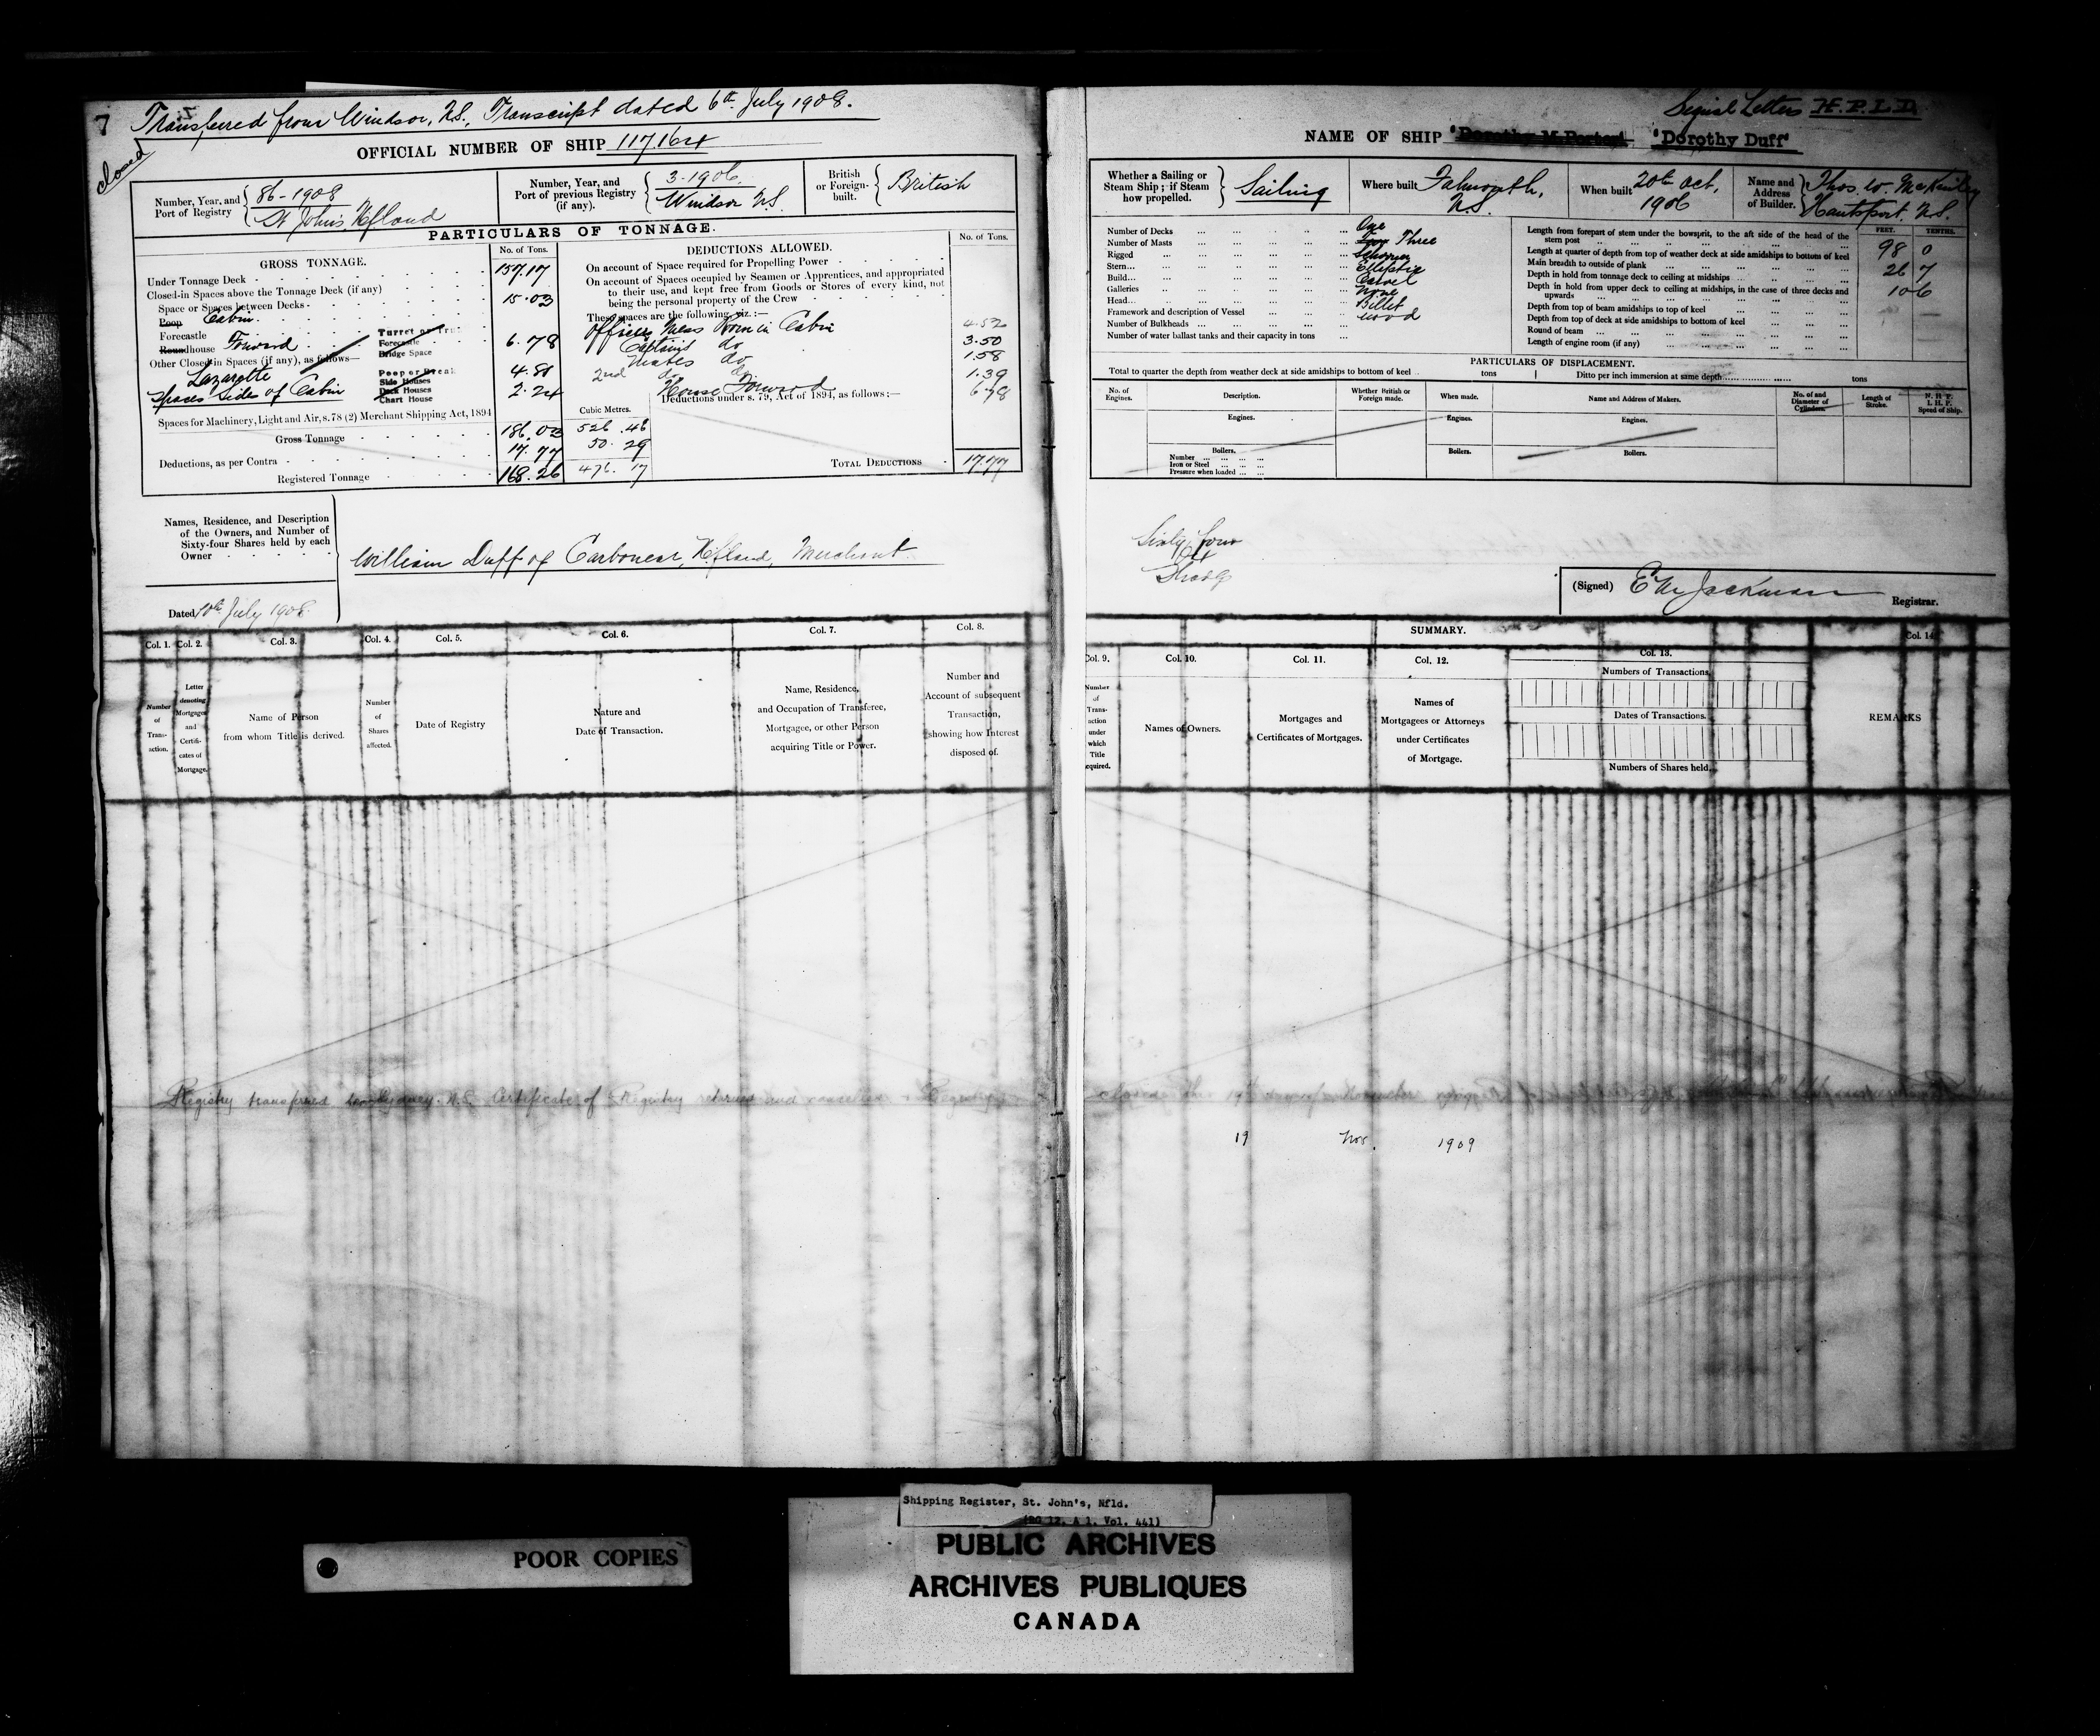 7
Transferred from Windsor, N.S., Transcript dated 6th July 1908.
closed
OFFICIAL NUMBER OF SHIP 117,164
Number, Year, and Port of Registry
86-1908
St Johns Nfland
Number, Year, and Port of previous Registry (if any).
3-1906.
Windsor N.S.
British or Foreign-built.
British
PARTICULARS OF TONNAGE.
GROSS TONNAGE.
No. of Tons.
Under Tonnage Deck 157.17
Closed-in Spaces above the Tonnage Deck (if any)
Space or Spaces between Decks
Poop Cabin 15.03
Forecastle
Roundhouse Forward 6.78
Other Closed-in Spaces (if any), as follows—
Lazarette 4.81
Spaces sides of Cabin 2.24
Forecastle
Bridge Space
Poop or Break
Side Houses
Deck Houses
Chart House
Spaces for Machinery, Light and Air, s.78 (2) Merchant Shipping Act, 1894
Cubic Metres.
Gross Tonnage 186.03 526.46
Deductions, as per Contra 17.77 50.29
Registered Tonnage 168.26 476.17
DEDUCTIONS ALLOWED.
No. of Tons.
On account of Space required for Propelling Power
On account of Spaces occupied by Seamen or Apprentices, and appropriated
to their use, and kept free from Goods or Stores of every kind, not
being the personal property of the Crew
These spaces are the following, viz.:—
Officers Mess Room in Cabin 4.52
Captains do 3.50
Mates do 1.58
2nd do do 1.39
House Forward 6.78
Deductions under s. 79, Act of 1894, as follows:—
TOTAL DEDUCTIONS 17.77
Names, Residence, and Description
of the Owners, and Number of
Sixty-four Shares held by each
Owner
William Duff of Carbonear, Nfland, Merchant
Dated 10th July 1908.
Col. 1. Col. 2. Col. 3. Col. 4. Col. 5. Col. 6. Col. 7. Col. 8.
Number of Transaction.
Letter denoting Mortgages and Certificates of Mortgage.
Name of Person from whom Title is derived.
Number of Shares affected.
Date of Registry
Nature and Date of Transaction.
Name, Residence, and Occupation of Transferee, Mortgagee, or other Person acquiring Title or Power.
Number and Account of subsequent Transaction, showing how Interest disposed of.
Registry transferred to Sydney. N.S. Certificate of Registry returned and cancelled & Registry
Signal Letters H.P.L.D.
NAME OF SHIP "Dorothy M. Porter" "Dorothy Duff"
Whether a Sailing or Steam Ship; if Steam how propelled.
Sailing
Where built
Falmouth, N.S.
When built
20th Oct, 1906
Name and Address of Builder.
Thos. W. McKinley
Hantsport. N.S.
Number of Decks ... One
Number of Masts ... Three
Rigged ... Schooner
Stern... ... Elliptic
Build... ... Carvel
Galleries ... None
Head... ... Billet
Framework and description of Vessel ... wood
Number of Bulkheads ...
Number of water ballast tanks and their capacity in tons ...
FEET. TENTHS.
Length from forepart of stem under the bowsprit, to the aft side of the head of the
stern post ... 98 0
Length at quarter of depth from top of weather deck at side amidships to bottom of keel
Main breadth to outside of plank ... 26 7
Depth in hold from tonnage deck to ceiling at midships ... 10 6
Depth in hold from upper deck to ceiling at midships, in the case of three decks and
upwards ...
Depth from top of beam amidships to top of keel ...
Depth from top of deck at side amidships to bottom of keel ...
Round of beam ...
Length of engine room (if any) ...
PARTICULARS OF DISPLACEMENT.
Total to quarter the depth from weather deck at side amidships to bottom of keel .. tons
Ditto per inch immersion at same depth........ tons
No. of Engines.
Description.
Whether British or Foreign made.
When made.
Name and Address of Makers.
No. of and Diameter of Cylinders.
Length of Stroke.
N. H. P. I. H. P. Speed of Ship.
Engines. Engines. Engines.
Boilers. Boilers. Boilers.
Number ...
Iron or Steel ...
Pressure when loaded ...
Sixty four
64
Shares
(Signed) E M Jackman
Registrar.
SUMMARY.
Col. 9. Col. 10. Col. 11. Col. 12. Col. 13. Col. 14.
Number of Transaction under which Title acquired.
Names of Owners.
Mortgages and Certificates of Mortgages.
Names of Mortgagees or Attorneys under Certificates of Mortgage.
Numbers of Transactions.
Dates of Transactions.
Numbers of Shares held.
REMARKS
closed this 19th day of November
19 Nov. 1909
POOR COPIES
Shipping Register, St. John's, Nfld.
(RG 12, A 1, Vol. 441)
PUBLIC ARCHIVES
ARCHIVES PUBLIQUES
CANADA